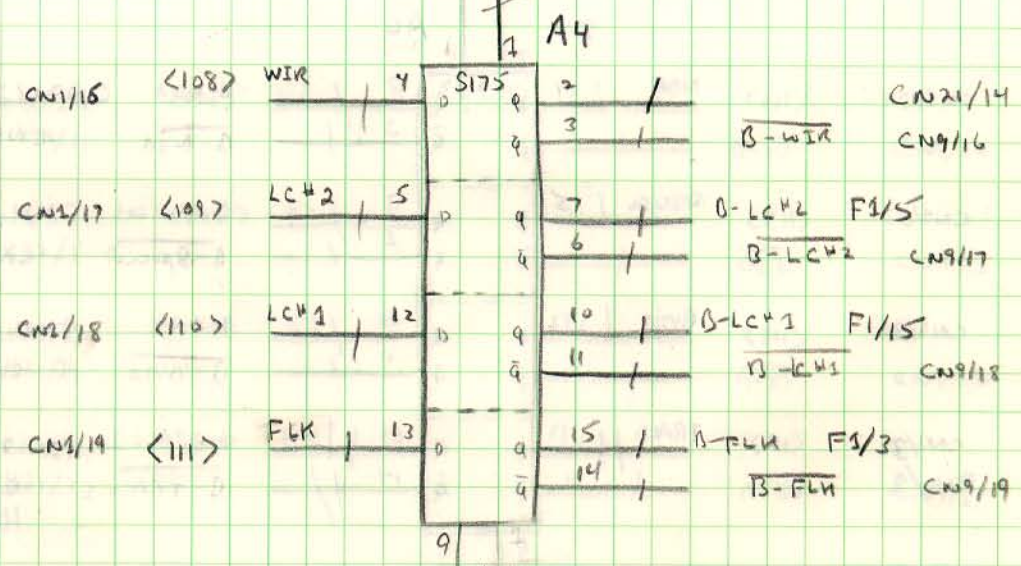 1 A4
CN1/16 <108> WIR 4 S175 D Q 2 CN21/14
Q̅ 3 B-WIR CN9/16
CN1/17 <109> LCH2 5 D Q 7 B-LCH2 F1/5
Q̅ 6 B-LCH2 CN9/17
CN1/18 <110> LCH1 12 D Q 10 B-LCH1 F1/15
Q̅ 11 B-LCH1 CN9/18
CN1/19 <111> FLK 13 D Q 15 B-FLK F1/3
Q̅ 14 B-FLK CN9/19
9